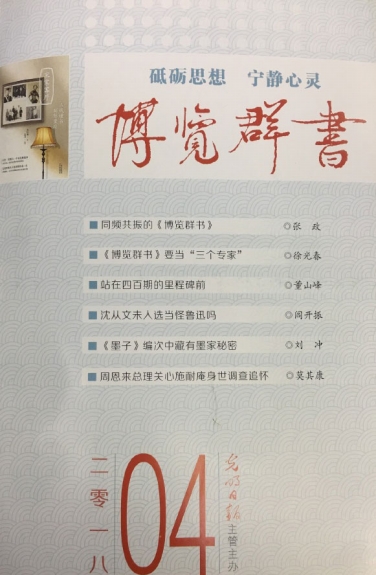 砥砺思想 宁静心灵
博览群書
同频共振的《博览群书》 ◎张 政
《博览群书》要当“三个专家” ◎徐光春
站在四百期的里程碑前 ◎董山峰
沈从文未入选当怪鲁迅吗 ◎阎开振
《墨子》编次中藏有墨家秘密 ◎刘 冲
周恩来总理关心施耐庵身世调查追怀 ◎莫其康
二零一八
04
光明日報 主管主办